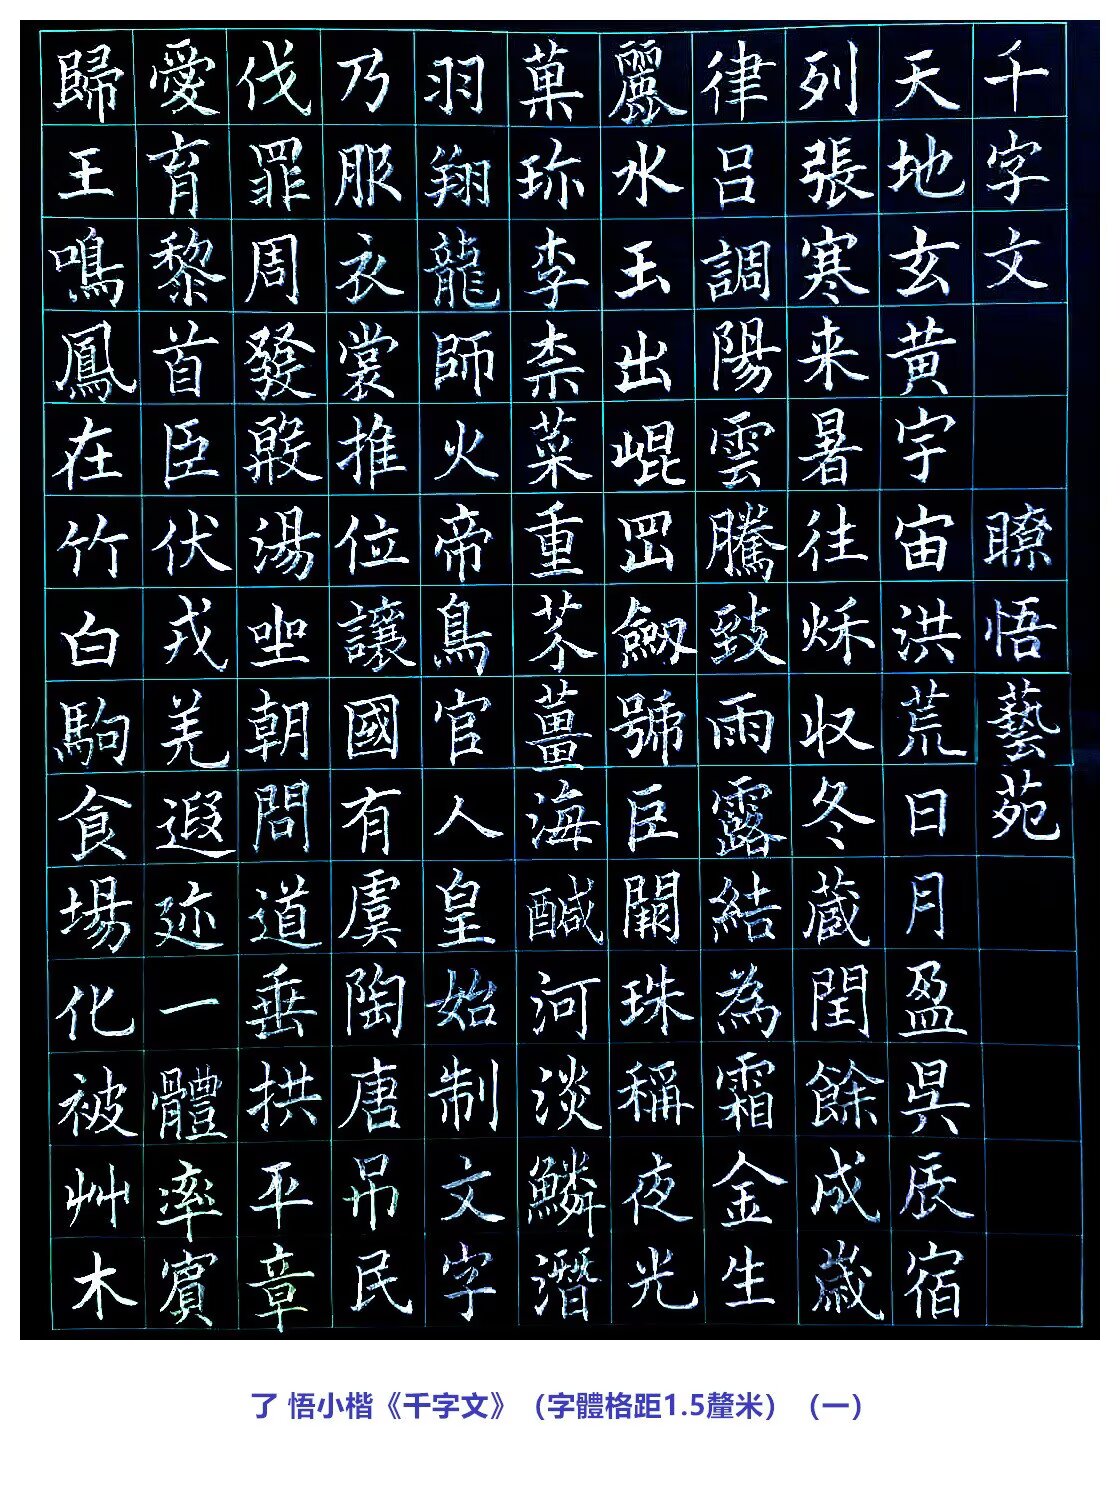 千字文瞭悟藝苑
天地玄黄宇宙洪荒日月盈吳辰宿
列張寒来暑徃秌収冬蔵閏餘成歳
律吕調陽雲騰致雨露結為霜金生
麗水玉出崐罡劒號巨闕珠稱夜光
菓珎李柰菜重芥薑海醎河淡鱗潛
羽翔龍師火帝鳥官人皇始制文字
乃服衣裳推位讓國有虞陶唐吊民
伐罪周發殷湯坐朝問道垂拱平章
愛育黎首臣伏戎羌遐迩一體率賓
歸王鳴鳳在竹白駒食場化被艸木
了 悟小楷《千字文》（字體格距1.5釐米）（一）